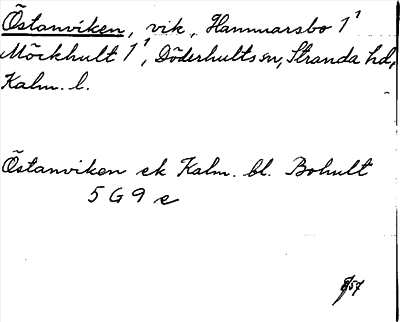 Östanviken, vik, Hammarsbo 1¹
Möckhult 1¹, Döderhults sn, Stranda hd,
Kalm. l.
Östanviken ek Kalm. bl. Bohult
5 G 9 e